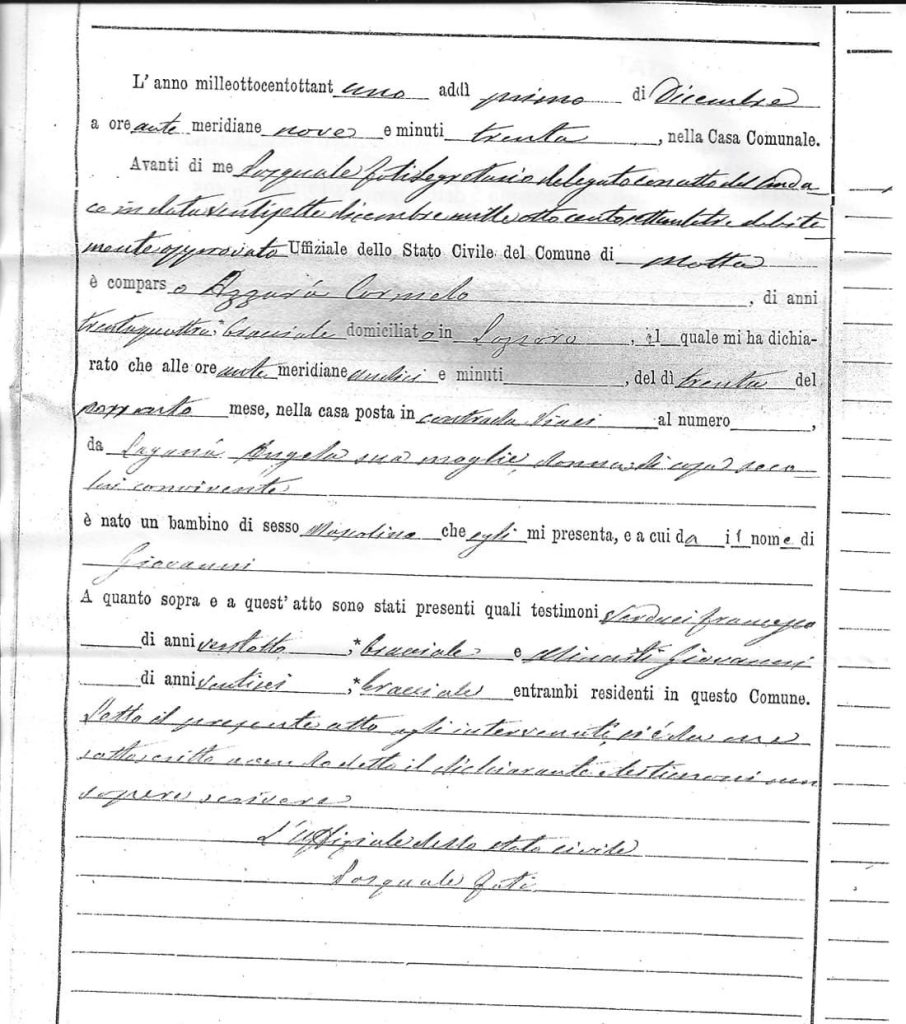 L' anno milleottocentottant uno addì primo di Dicembre
a ore ante meridiane nove e minuti trenta, nella Casa Comunale.
Avanti di me Pasquale Foti Segretario delegato con atto del Sinda
co in data ventisette dicembre mille otto cento debita
mente approvato Uffiziale dello Stato Civile del Comune di Motta
è compars o Azzarà Carmelo, di anni
trentaquattro, bracciale domiciliato in Lazzaro, il quale mi ha dichia-
rato che alle ore ante meridiane undici e minuti, del dì trenta del
passato mese, nella casa posta in contrada al numero,
da Laganà Angela sua moglie, donna di casa seco
lui convivente
è nato un bambino di sesso Mascolino che egli mi presenta, e a cui da il nome di
Giovanni
A quanto sopra e a quest' atto sono stati presenti quali testimoni Verduci Francesco
di anni ventotto, bracciale e Minniti Giovanni
di anni, bracciale entrambi residenti in questo Comune.
Letto il presente atto agli intervenuti, si è da me
sottoscritto avendo detto il dichiarante e testimoni non
sapere scrivere
L'Uffiziale dello stato civile
Pasquale Foti